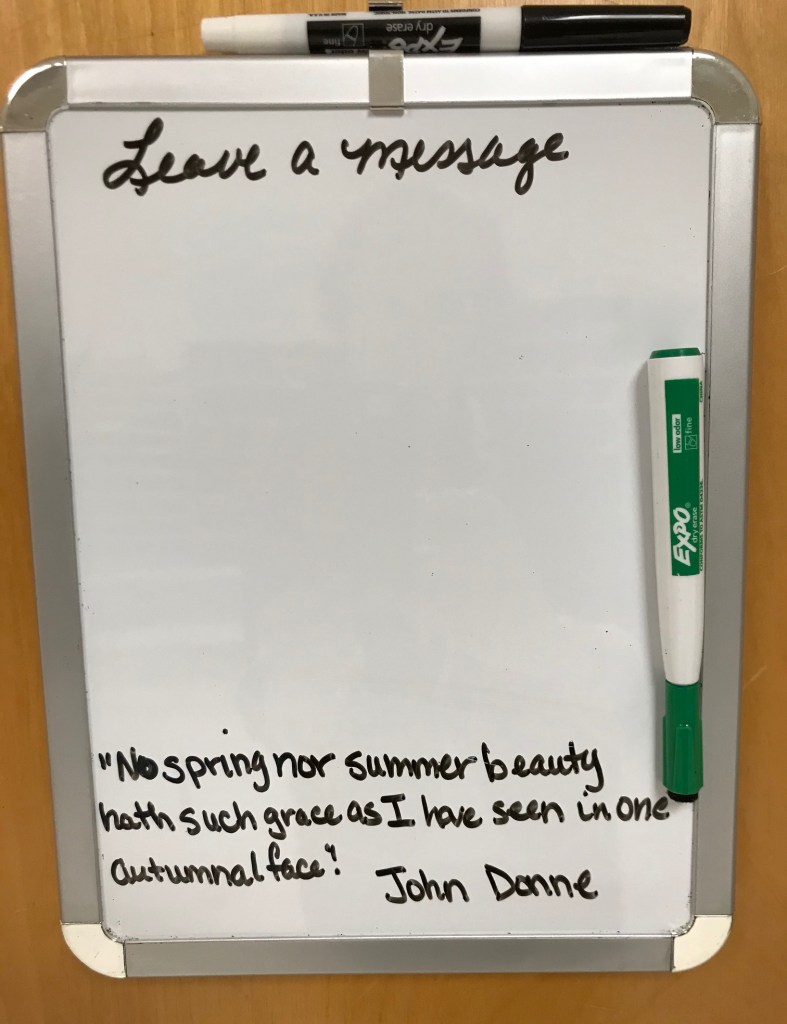 EXPO
dry erase
fine
Leave a message
low odor
fine
EXPO
dry erase
"No spring nor summer beauty
hath such grace as I have seen in one
autumnal face".
John Donne